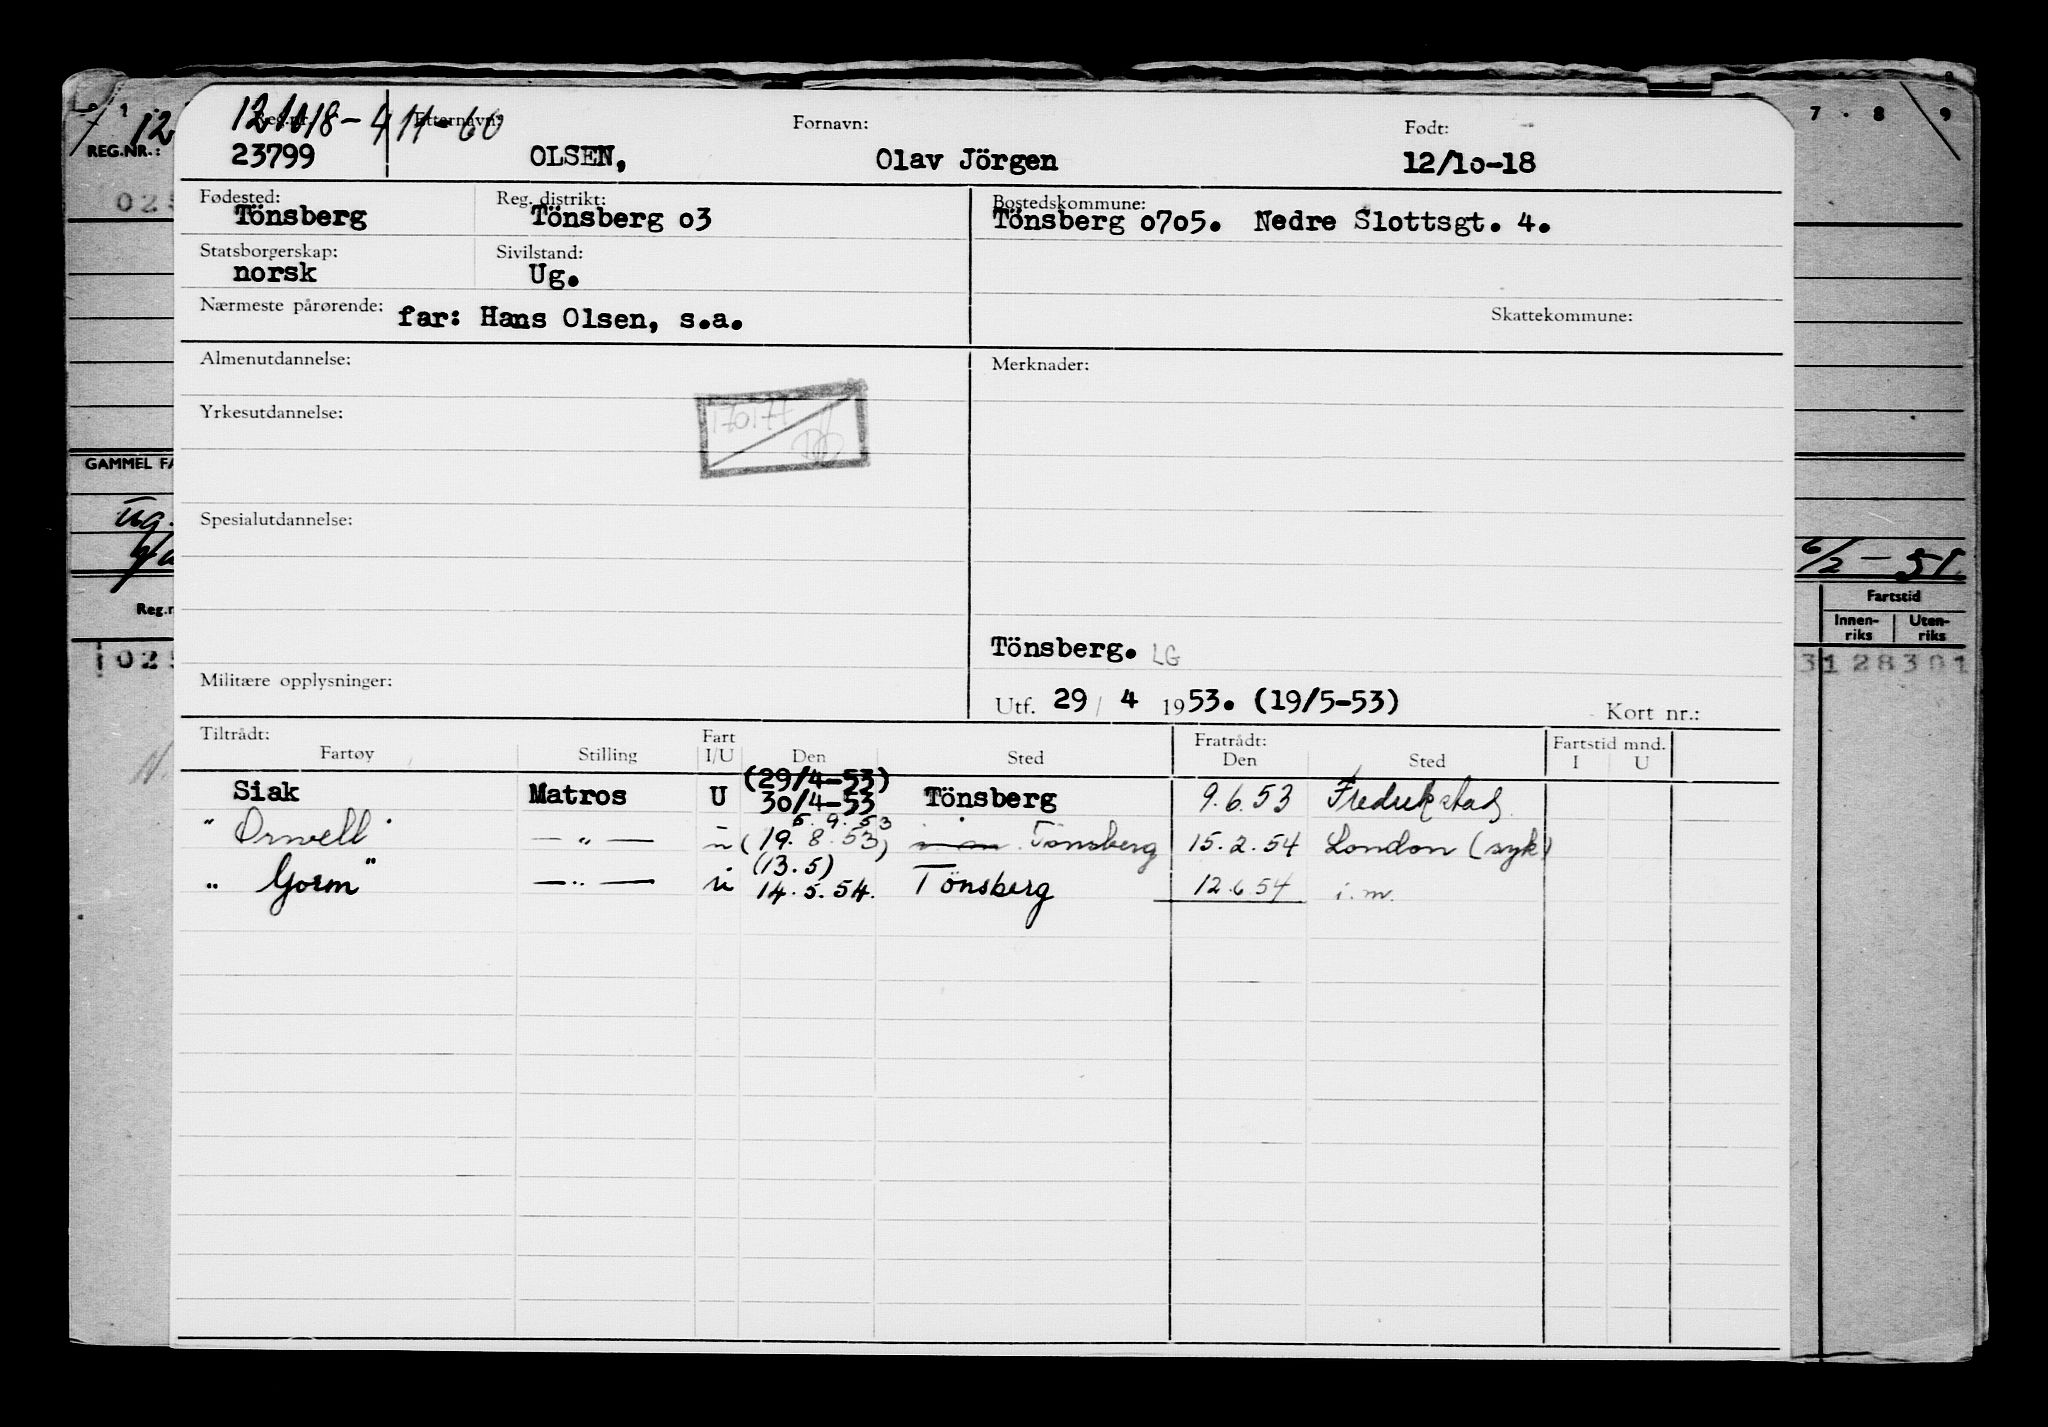 7 · 8 9
12
REG.NR.:
Reg.nr. Etternavn: Fornavn: Født:
23799 OLSEN, Olav Jörgen 12/10-18
Fødested: Reg. distrikt: Bostedskommune:
Tönsberg Tönsberg 03 Tönsberg 0705. Nedre Slottsgt. 4.
Statsborgerskap: Sivilstand:
norsk Ug.
Nærmeste pårørende: far: Hans Olsen, s.a. Skattekommune:
Almenutdannelse: Merknader:
Yrkesutdannelse:
170177
GAMMEL FA
ug.
Spesialutdannelse:
6/2-51.
Reg.n Fartstid
Innen-riks Uten-riks
025 Tönsberg. LG 3128301
Militære opplysninger:
Utf. 29 / 4 1953. (19/5-53) Kort nr.:
Tiltrådt: Fart Fratrådt: Fartstid mnd.
Fartøy Stilling I/U Den Sted Den Sted I U
(29/4-53)
Siak Matros U 30/4-53 Tönsberg 9.6.53 Fredrikstad
5.9.53
"Orwell" — " — u (19.8.53) Tönsberg 15.2.54 London (syk)
(13.5)
"Gorm" — " — u 14.5.54. Tönsberg 12.6.54 i.m.